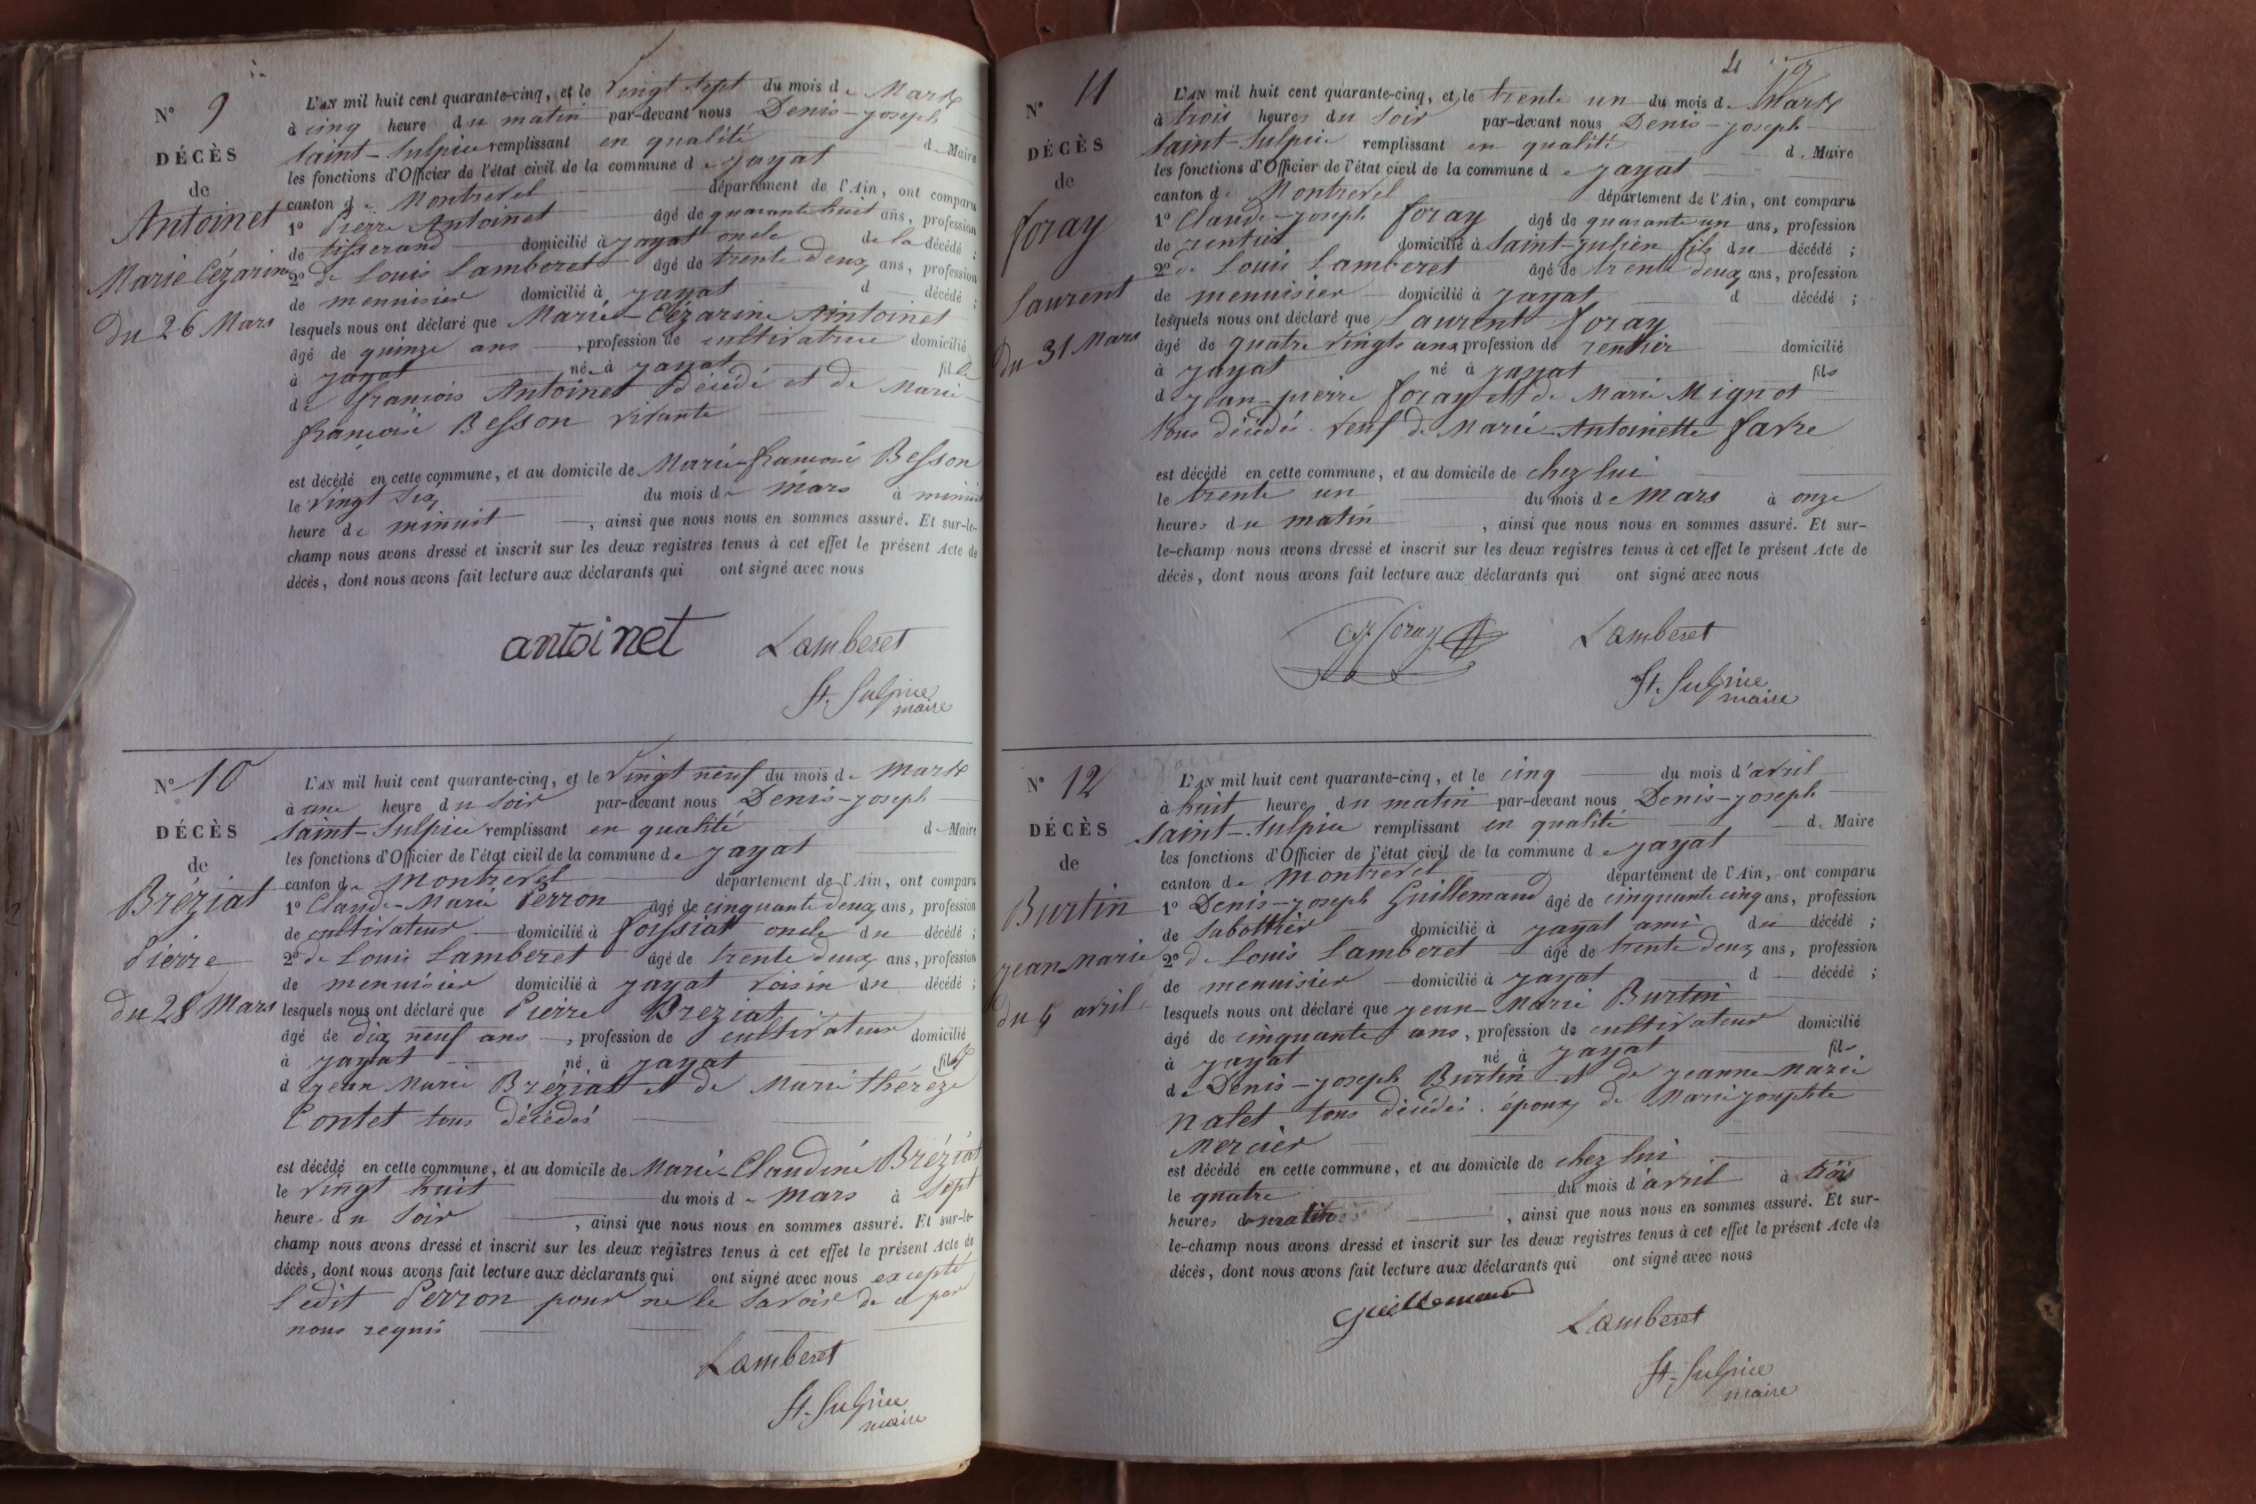 N° 9
DÉCÈS
de
Antoinet
Marie Cézarine
Du 26 Mars
L'AN mil huit cent quarante-cinq, et le Vingt sept du mois de Mars
à cinq heure du matin par-devant nous Denis-joseph
Saint-Sulpice remplissant en qualité de Maire
les fonctions d'Officier de l'état civil de la commune de jayat
canton de Montrevel département de l'Ain, ont comparu
1° Pierre Antoinet âgé de quarante huit ans, profession
de tisserand domicilié à jayat oncle de la décédé ;
2° de Louis Lamberet âgé de trente deux ans, profession
de menuisier domicilié à jayat d décédé ;
lesquels nous ont déclaré que Marie-Cézarine Antoinet
âgé de quinze ans, profession de cultivatrice domicilié
à jayat née à jayat fille
de françois Antoinet décédé et de Marie
françoise Besson vivante
est décédé en cette commune, et au domicile de Marie-françoise Besson
le vingt six du mois de mars à minuit
heure de minuit, ainsi que nous nous en sommes assuré. Et sur-le-
champ nous avons dressé et inscrit sur les deux registres tenus à cet effet le présent Acte de
décès, dont nous avons fait lecture aux déclarants qui ont signé avec nous
antoinet Lamberet
St. Sulpice
maire
N° 10
DÉCÈS
de
Bréziat
Pierre
du 28 Mars
L'AN mil huit cent quarante-cinq, et le Vingt neuf du mois de Mars
à une heure du soir par-devant nous Denis-joseph
Saint-Sulpice remplissant en qualité de Maire
les fonctions d'Officier de l'état civil de la commune de jayat
canton de Montrevel département de l'Ain, ont comparu
1° Claude-Marie Perron âgé de cinquante deux ans, profession
de cultivateur domicilié à foissiat oncle du décédé ;
2° de Louis Lamberet âgé de trente deux ans, profession
de menuisier domicilié à jayat voisin du décédé ;
lesquels nous ont déclaré que Pierre Breziat
âgé de dix neuf ans, profession de cultivateur domicilié
à jayat né à jayat fils
d jean Marie Bréziat et de Marie thérèze
Contet tous décédés
est décédé en cette commune, et au domicile de Marie-Claudine Bréziat
le vingt huit du mois de mars à sept
heure du soir, ainsi que nous nous en sommes assuré. Et sur-le-
champ nous avons dressé et inscrit sur les deux registres tenus à cet effet le présent Acte de
décès, dont nous avons fait lecture aux déclarants qui ont signé avec nous excepté
ledit Perron pour ne le savoir de ce par
nous requis
Lamberet
St. Sulpice
maire
4
N° 11
DÉCÈS
de
foray
Laurent
Du 31 Mars
L'AN mil huit cent quarante-cinq, et le trente un du mois de Mars
à trois heures du soir par-devant nous Denis-joseph
Saint-Sulpice remplissant en qualité de Maire
les fonctions d'Officier de l'état civil de la commune de jayat
canton de Montrevel département de l'Ain, ont comparu
1° Claude-joseph foray âgé de quarante un ans, profession
de rentier domicilié à Saint-julien fils du décédé ;
2° de Louis Lamberet âgé de trente deux ans, profession
de menuisier domicilié à jayat d décédé ;
lesquels nous ont déclaré que Laurent foray
âgé de quatre vingts ans profession de rentier domicilié
à jayat né à jayat fils
d jean-pierre foray et de Marie Mignot
tous décédés. veuf de Marie-Antoinette favre
est décédé en cette commune, et au domicile de chez lui
le trente un du mois de Mars à onze
heures du matin, ainsi que nous nous en sommes assuré. Et sur-
le-champ nous avons dressé et inscrit sur les deux registres tenus à cet effet le présent Acte de
décès, dont nous avons fait lecture aux déclarants qui ont signé avec nous
foray Lamberet
St. Sulpice
maire
N° 12
DÉCÈS
de
Burtin
jean Marie
du 4 avril
L'AN mil huit cent quarante-cinq, et le cinq du mois d'avril
à huit heure du matin par-devant nous Denis-joseph
Saint-Sulpice remplissant en qualité de Maire
les fonctions d'Officier de l'état civil de la commune de jayat
canton de Montrevel département de l'Ain, ont comparu
1° Denis-joseph Guillemaud âgé de cinquante cinq ans, profession
de sabottier domicilié à jayat ami du décédé ;
2° de Louis Lamberet âgé de trente deux ans, profession
de menuisier domicilié à jayat d décédé ;
lesquels nous ont déclaré que jean-Marie Burtin
âgé de cinquante ans, profession de cultivateur domicilié
à jayat né à jayat fils
de Denis-joseph Burtin et de jeanne Marie
Nalet tous décédés. époux de Marie josephte
Mercier
est décédé en cette commune, et au domicile de chez lui
le quatre du mois d'avril à trois
heures du matin, ainsi que nous nous en sommes assuré. Et sur-
le-champ nous avons dressé et inscrit sur les deux registres tenus à cet effet le présent Acte de
décès, dont nous avons fait lecture aux déclarants qui ont signé avec nous
Guillemaud
Lamberet
St. Sulpice
maire